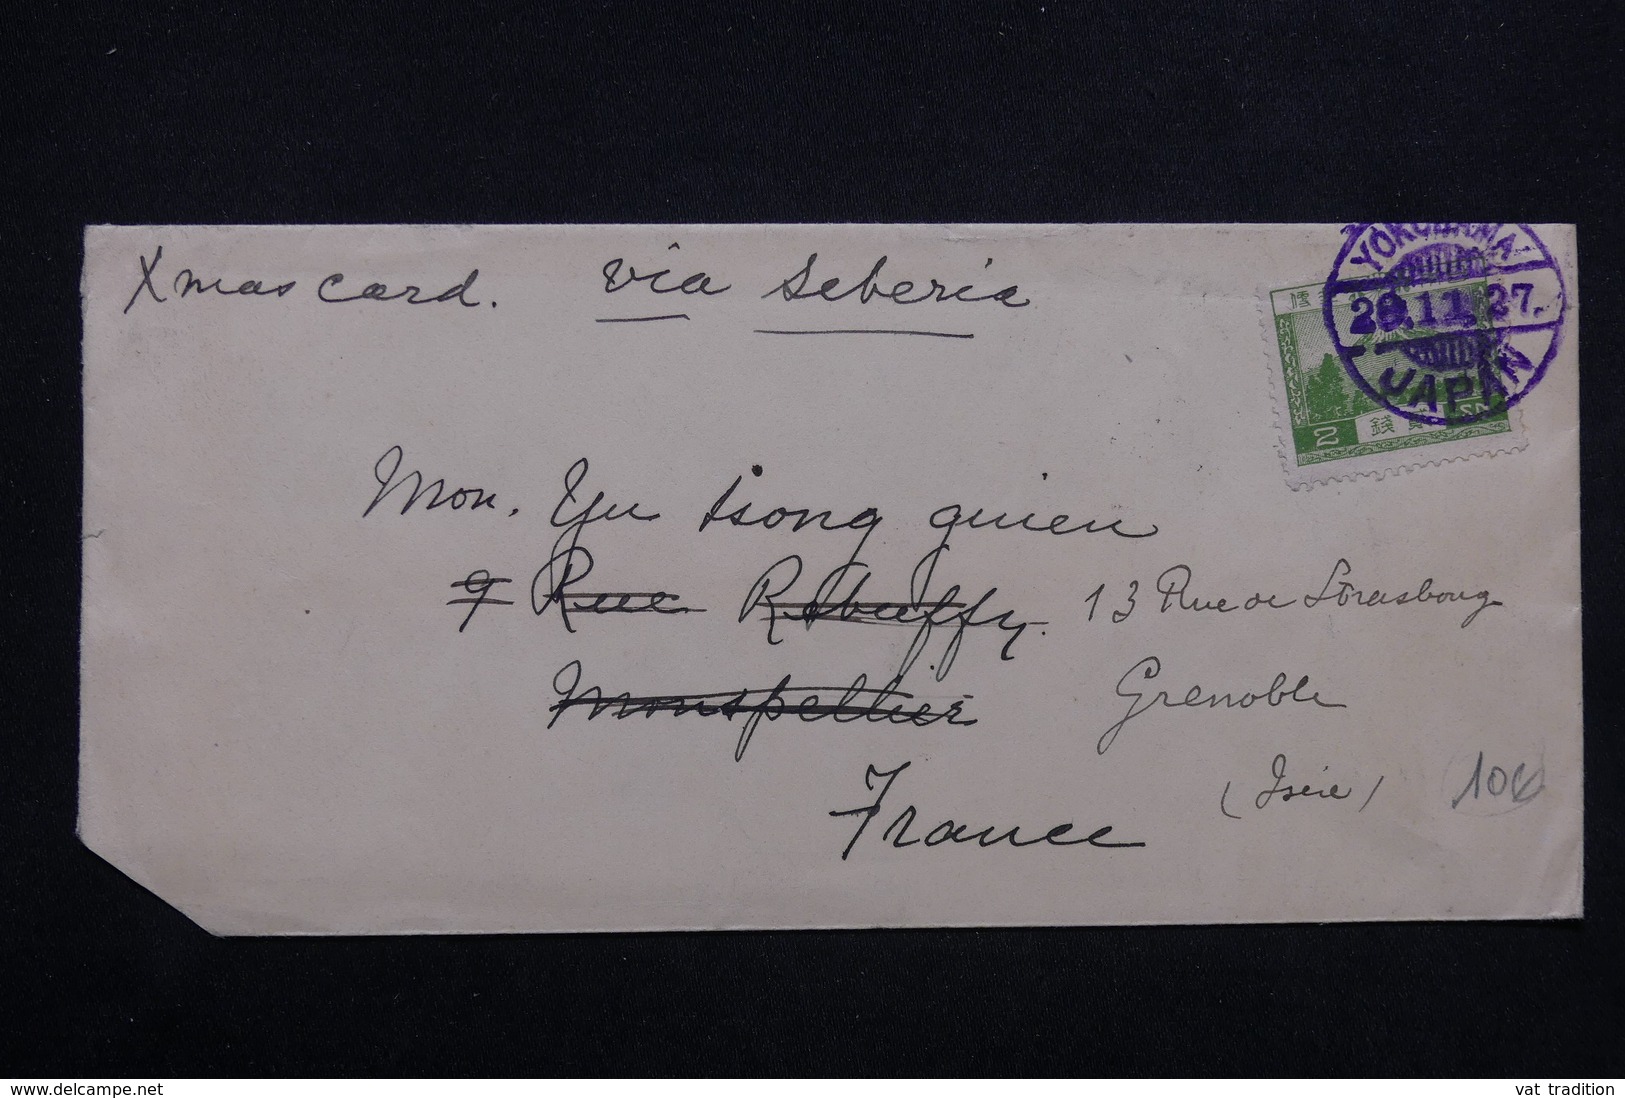 Xmas card. via Seberia
YOKOHAMA
28.11.27.
JAPAN
2 錢
Mon. Yu tsong quien
9 Rue Rebuffy. 13 Rue de Strasbourg
Monspellier Grenoble
France (Isère)
10€
www.delcampe.net
vat_tradition